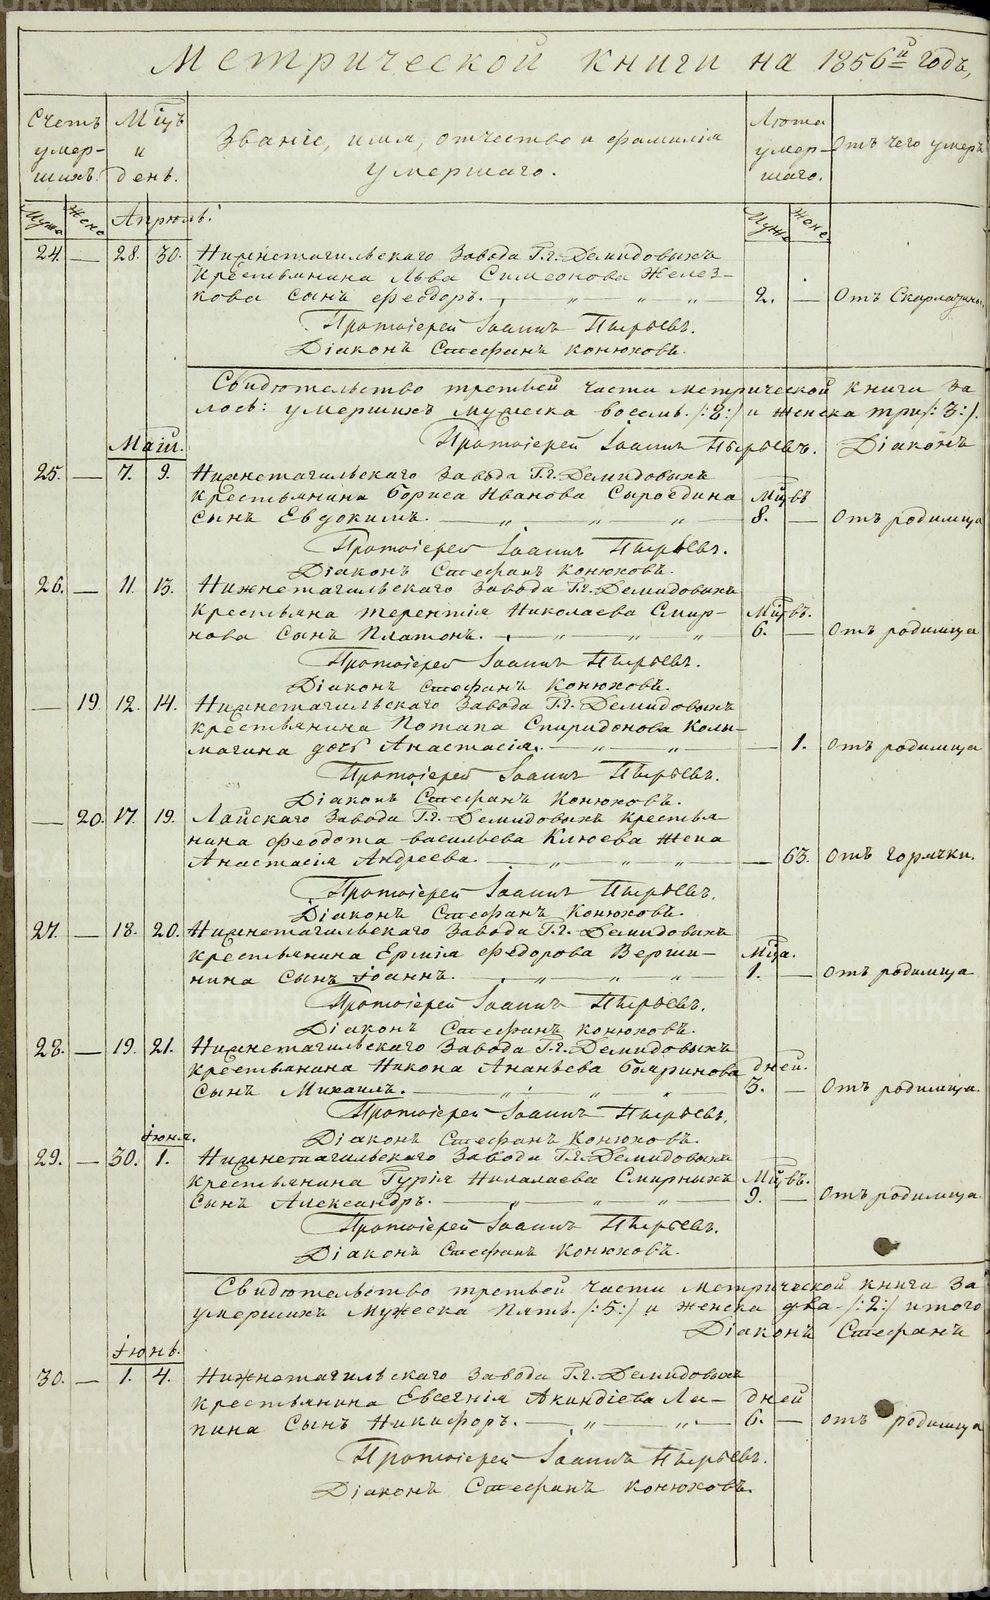 Метрической книги на 1856й годъ,
Счетъ умершихъ.
Мцъ и день.
Званіе, имя, отчество и фамилія умершаго.
Лѣта умершаго.
Отъ чего умеръ
Мужа Жено Апрѣль. Мужа Жено
24. — 28. 30. Нижнетагильскаго Завода Г.г. Демидовыхъ
Крестьянина Льва Симеонова Желез-
кова сынъ Феодоръ. 2. — Отъ Скарлатины
Протоіерей Іоаннъ Пырьевъ.
Діаконъ Стефанъ Конюховъ.
Свидѣтельство третьей части метрической книги за
лось: умершихъ мужеска восемь /:8:/ и женска три /:3:/.
Протоіерей Іоаннъ Пырьевъ. Діаконъ
Маій.
25. — 7. 9. Нижнетагильскаго Завода Г.г. Демидовыхъ
крестьянина Бориса Иванова Сыроедина Мцвъ
сынъ Евдокимъ. 8. — Отъ родимца
Протоіерей Іоаннъ Пырьевъ.
Діаконъ Стефанъ Конюховъ.
26. — 11. 13. Нижнетагильскаго Завода Г.г. Демидовыхъ
крестьяна Терентія Николаева Смир- Мцвъ.
нова сынъ Платонъ. 6. — Отъ родимца
Протоіерей Іоаннъ Пырьевъ.
Діаконъ Стефанъ Конюховъ.
— 19. 12. 14. Нижнетагильскаго Завода Г.г. Демидовыхъ
крестьянина Потапа Спиридонова Колы-
магина дочь Анастасія. — 1. Отъ родимца
Протоіерей Іоаннъ Пырьевъ.
Діаконъ Стефанъ Конюховъ.
— 20. 17. 19. Лайскаго Завода Г.г. Демидовыхъ крестья-
нина Феодота Васильева Клюева жена
Анастасія Андреева. — 63. Отъ горячки.
Протоіерей Іоаннъ Пырьевъ.
Діаконъ Стефанъ Конюховъ.
27. — 18. 20. Нижнетагильскаго Завода Г.г. Демидовыхъ
крестьянина Ермія Федорова Верши- Мца.
нина сынъ Іоаннъ. 1. — Отъ родимца
Протоіерей Іоаннъ Пырьевъ.
Діаконъ Стефанъ Конюховъ.
28. — 19. 21. Нижнетагильскаго Завода Г.г. Демидовыхъ
крестьянина Никона Ананьева Бояринова дней.
сынъ Михаилъ. 3. — Отъ родимца.
Протоіерей Іоаннъ Пырьевъ.
Діаконъ Стефанъ Конюховъ.
Іюня.
29. — 30. 1. Нижнетагильскаго Завода Г.г. Демидовыхъ
крестьянина Гурія Николаева Смирныхъ Мцвъ.
сынъ Александръ. 9. — Отъ родимца
Протоіерей Іоаннъ Пырьевъ.
Діаконъ Стефанъ Конюховъ.
Свидѣтельство третьей части метрической книги за
умершихъ мужеска пять /:5:/ и женска два /:2:/ итого
Діаконъ Стефанъ
Іюнь.
30. — 1. 4. Нижнетагильскаго Завода Г.г. Демидовыхъ
крестьянина Евсегнія Акиндіева Ла- дней
пина сынъ Никифоръ. 6. — отъ родимца
Протоіерей Іоаннъ Пырьевъ.
Діаконъ Стефанъ Конюховъ.
METRIKI.GASO-URAL.RU